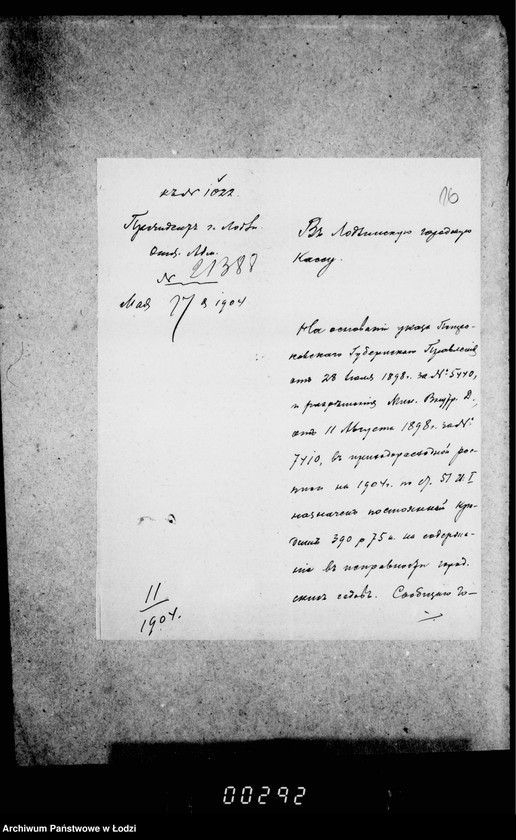 къ № 1022.
16
Президентъ г. Лодзи.
Отд. Адм.
№ 21388
Мая 17 д. 1904
Въ Лодзинскую городскую
Кассу.
На основаніи указа Петро-
ковскаго Губернскаго Правленія
отъ 28 Іюля 1898 г. за № 5440,
и разрѣшенія Мин. Внутр. Д.,
отъ 11 Августа 1898 г. за №
7410, въ приходорасходной рос-
писи на 1904 г. по ст. 51 ч. I
назначенъ постоянный кре-
дитъ 390 р 75 к. на содержа-
ніе въ исправности город-
скихъ садовъ. Сообщаю го-
11
1904.
00292
Archiwum Państwowe w Łodzi